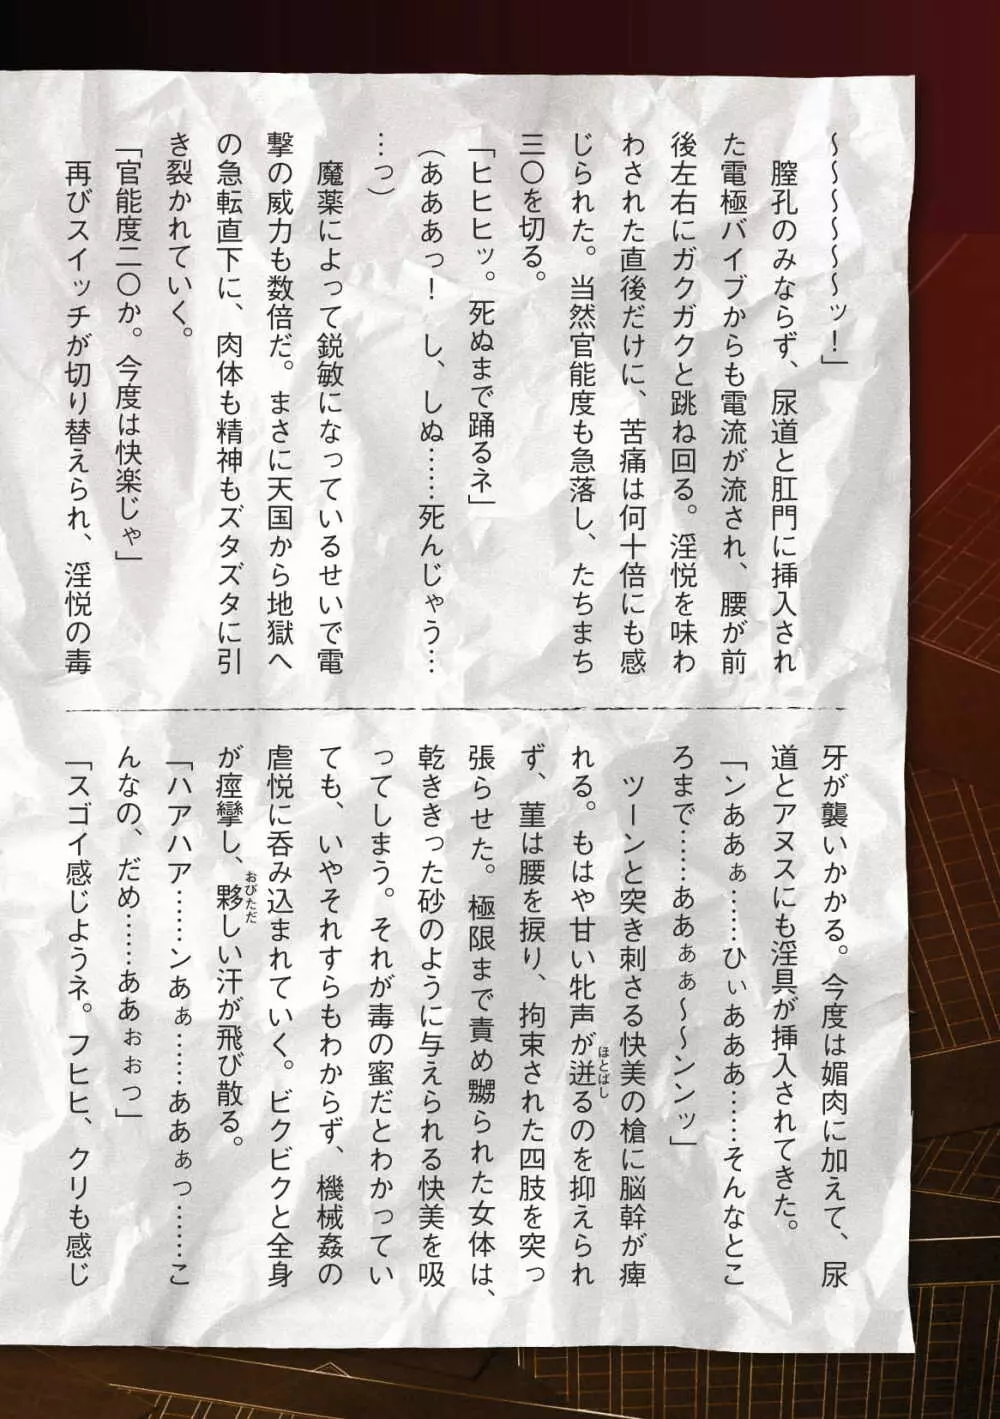 〜〜〜〜〜〜〜ッ！」
　膣孔のみならず、尿道と肛門に挿入され
た電極バイブからも電流が流され、腰が前
後左右にガクガクと跳ね回る。淫悦を味わ
わされた直後だけに、苦痛は何十倍にも感
じられた。当然官能度も急落し、たちまち
三〇を切る。
「ヒヒヒッ。死ぬまで踊るネ」
（あああっ！　し、しぬ……死んじゃう…
…っ）
　魔薬によって鋭敏になっているせいで電
撃の威力も数倍だ。まさに天国から地獄へ
の急転直下に、肉体も精神もズタズタに引
き裂かれていく。
「官能度二〇か。今度は快楽じゃ」
　再びスイッチが切り替えられ、淫悦の毒
牙が襲いかかる。今度は媚肉に加えて、尿
道とアヌスにも淫具が挿入されてきた。
「ンああぁ……ひぃあああ……そんなとこ
ろまで……ああぁぁ〜〜ンンッ」
　ツーンと突き刺さる快美の槍に脳幹が痺
れる。もはや甘い牝声が迸るのを抑えられ
ほとばし
ず、菫は腰を捩り、拘束された四肢を突っ
張らせた。極限まで責め嬲られた女体は、
乾ききった砂のように与えられる快美を吸
ってしまう。それが毒の蜜だとわかってい
ても、いやそれすらもわからず、機械姦の
虐悦に呑み込まれていく。ビクビクと全身
が痙攣し、夥しい汗が飛び散る。
おびただ
「ハアハア……ンあぁ……ああぁっ……こ
んなの、だめ……ああぉぉっ」
「スゴイ感じようネ。フヒヒ、クリも感じ